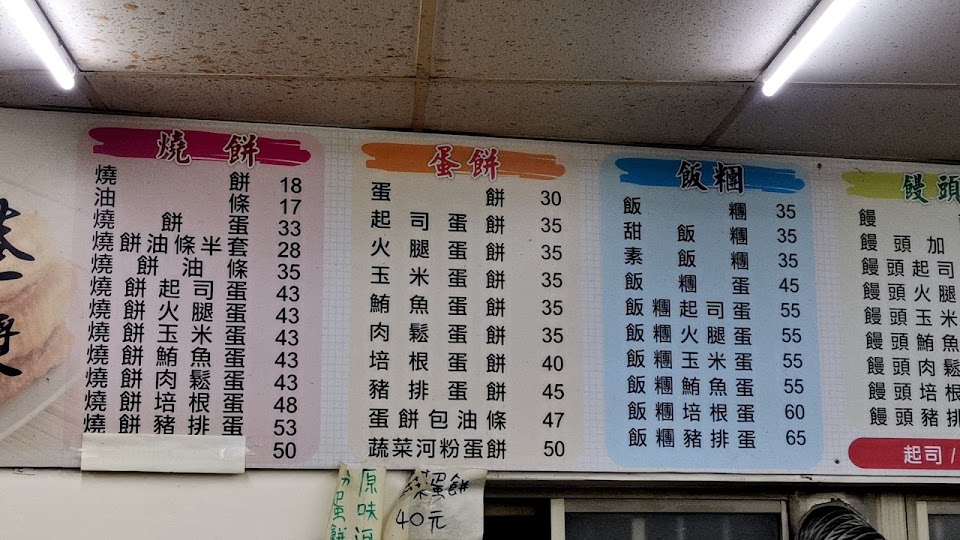 燒餅
燒餅 18
油條 17
燒餅蛋 33
燒餅油條半套 28
燒餅油條 35
燒餅起司蛋 43
燒餅火腿蛋 43
燒餅玉米蛋 43
燒餅鮪魚蛋 43
燒餅肉鬆蛋 43
燒餅培根蛋 48
燒餅豬排蛋 53
50
蛋餅
蛋餅 30
起司蛋餅 35
火腿蛋餅 35
玉米蛋餅 35
鮪魚蛋餅 35
肉鬆蛋餅 35
培根蛋餅 40
豬排蛋餅 45
蛋餅包油條 47
蔬菜河粉蛋餅 50
飯糰
飯糰 35
甜飯糰 35
素飯糰 35
飯糰蛋 45
飯糰起司蛋 55
飯糰火腿蛋 55
飯糰玉米蛋 55
飯糰鮪魚蛋 55
飯糰培根蛋 60
飯糰豬排蛋 65
饅頭
饅
饅頭加
饅頭起司
饅頭火腿
饅頭玉米
饅頭鮪魚
饅頭肉鬆
饅頭培根
饅頭豬排
起司/
原味
蛋餅
蛋餅
40元